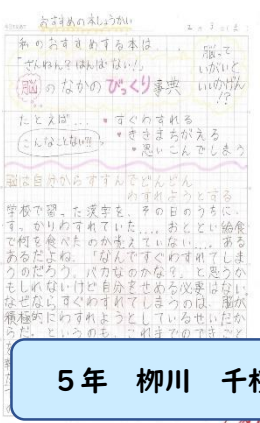 おすすめの本しょうかい
私のおすすめする本は…
「ざんねん?はんぱない!」
脳のなかのびっくり事典
脳って
いがいと
いいかげん
!?
たとえば…
・すぐわすれる
・ききまちがえる
・思いこんでしまう
こんなことない?
脳は自分からすすんでどんどん
わすれようとする
学校で習った漢字を、その日のうちに
すっかりわすれていた…。おととい給食
で何を食べたのか考えていない…。ある
あるだよね。「なんですぐわすれてしま
うのだろう。バカなのかな?」と思うか
もしれないけど自分をせめる必要はない。
なぜならすぐわすれてしまうのは、脳が
積極的にわすれようとしているせいだか
らだ。というのも、これまでのできごと
5年 柳川 千桜